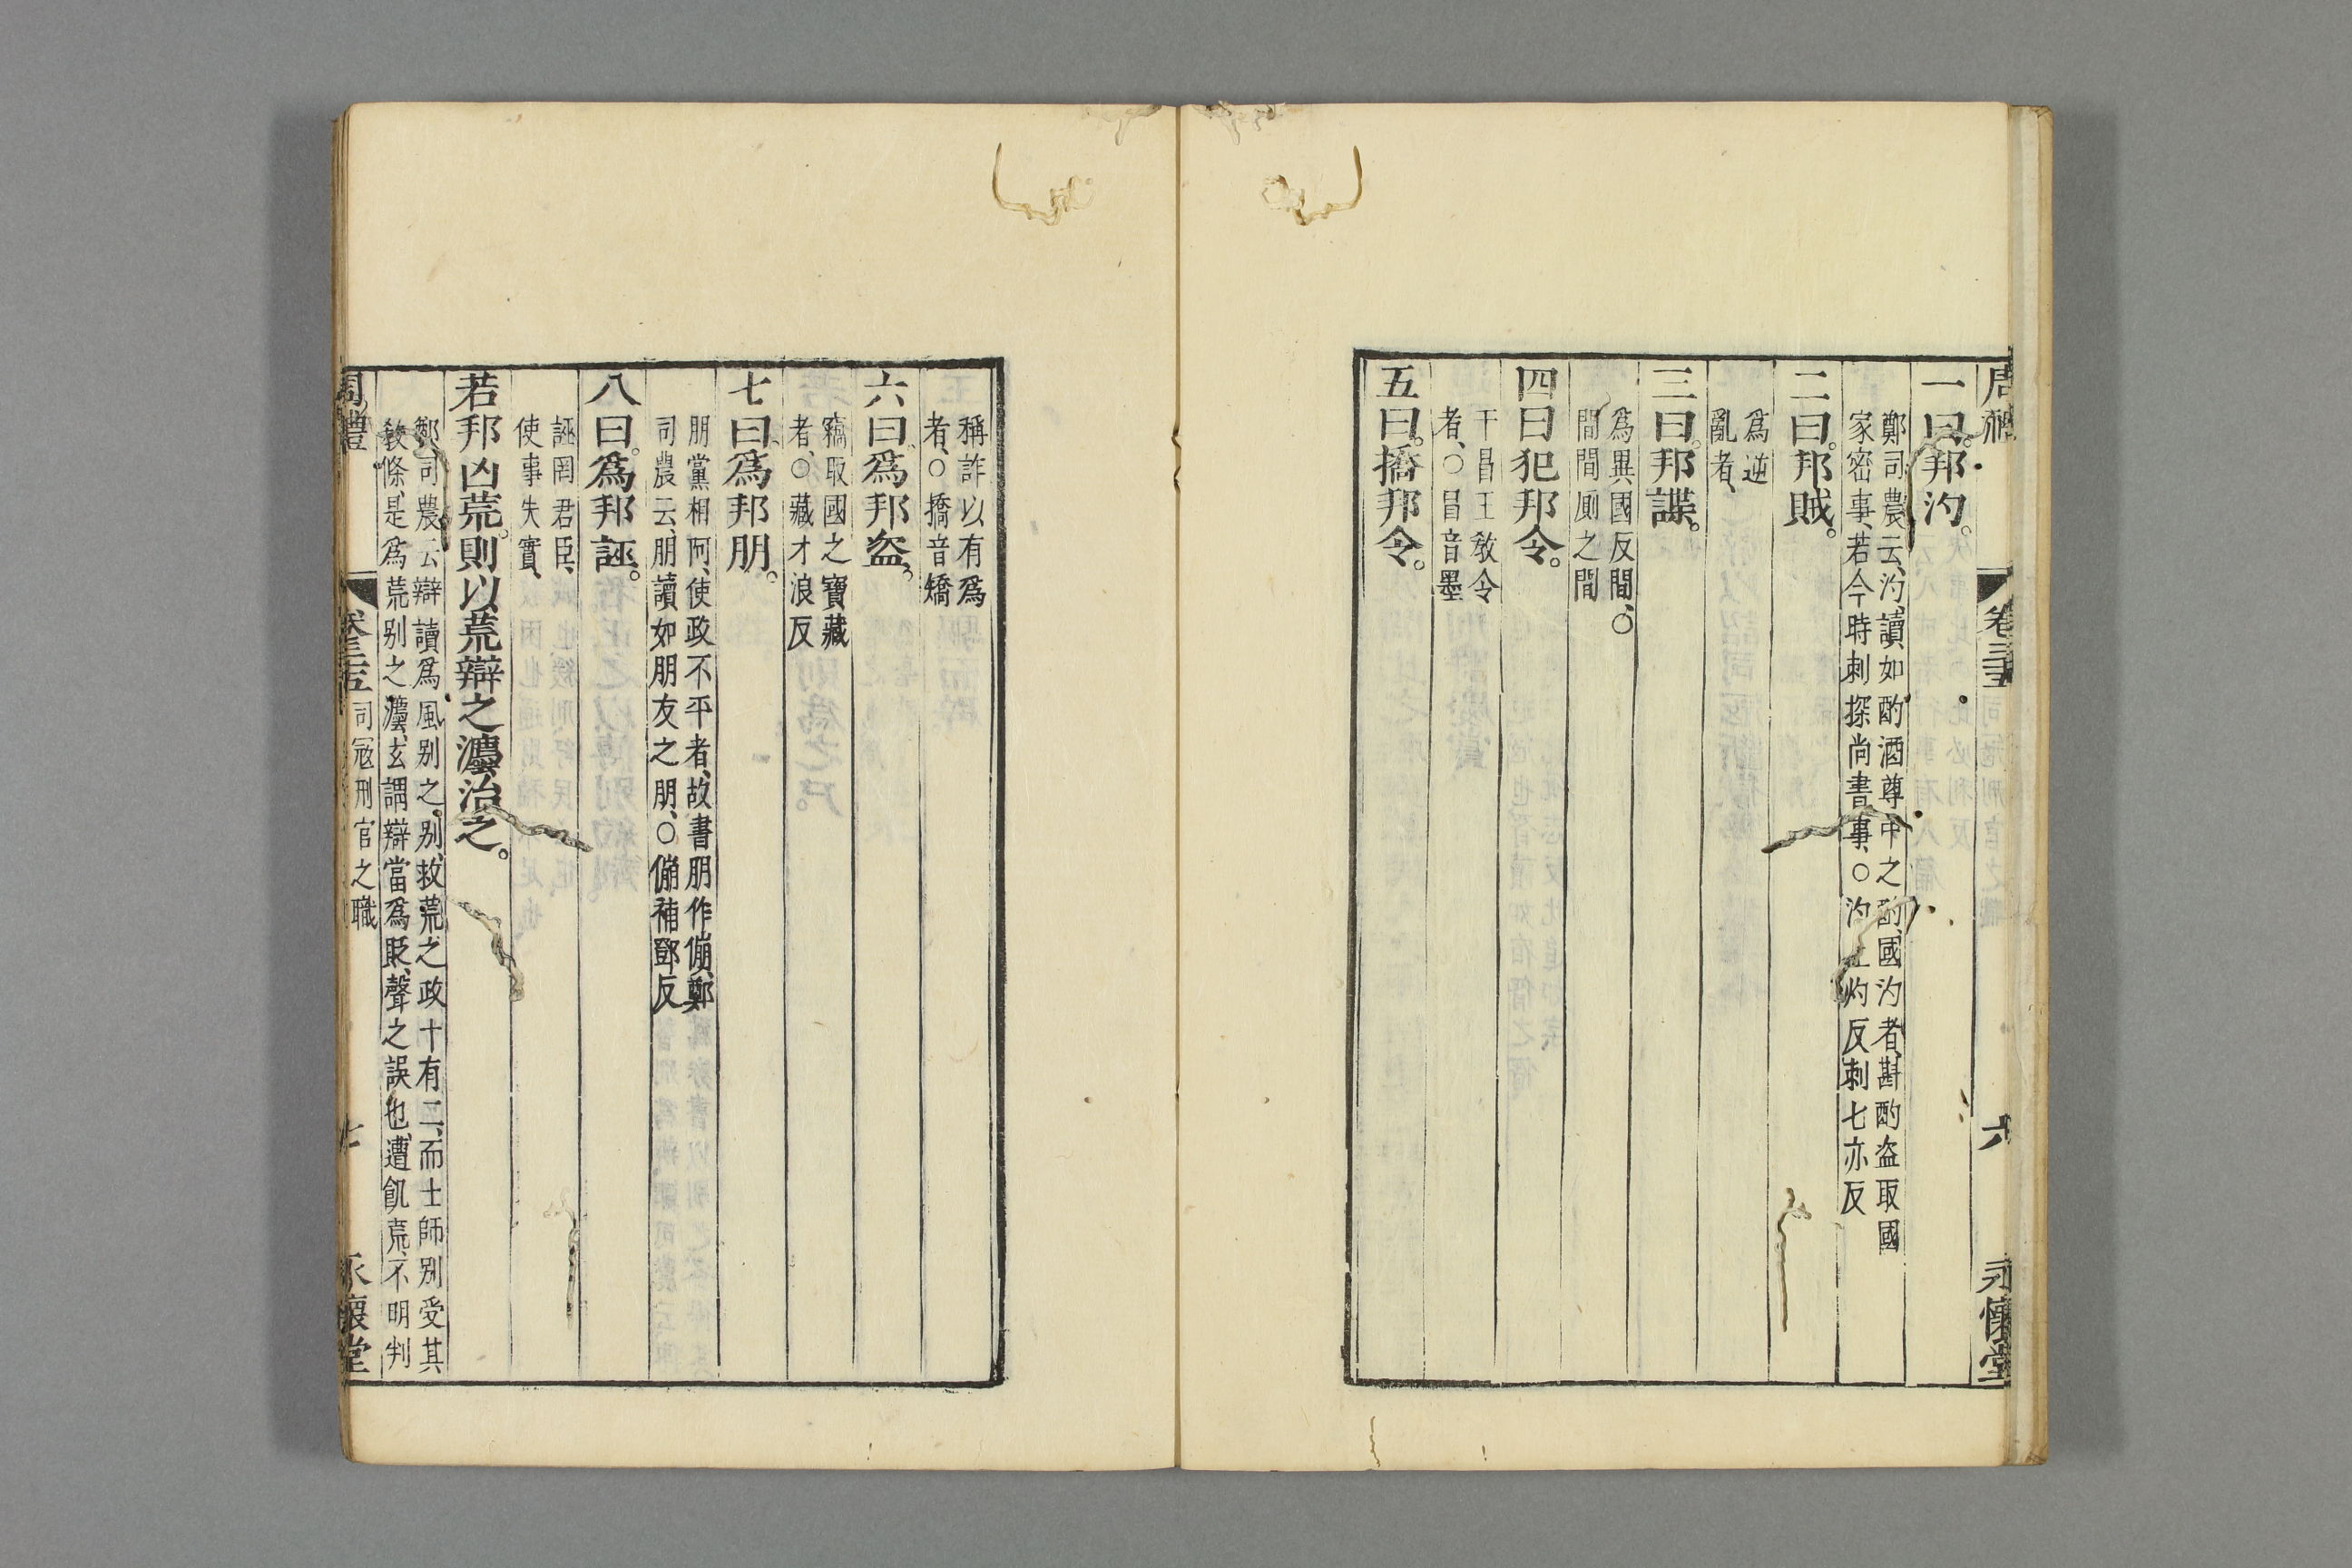 周禮 卷三十五 六 永懷堂
一曰。邦汋。
鄭司農云、汋、讀如酌酒尊中之酌、國汋者、斟酌盜取國
家密事、若今時刺探尚書事、○汋上灼反刺七亦反
二曰。邦賊。
爲逆
亂者、
三曰。邦諜。
爲異國反間、○
間間厠之間
四曰犯邦令。
干冒王敎令
者、○冒音墨
五曰。撟邦令。
稱詐以有爲
者、○撟音矯
六曰、爲邦盜。
竊取國之寶藏
者、○藏才浪反
七曰、爲邦朋。
朋黨相阿、使政不平者、故書朋作傰、鄭
司農云、朋讀如朋友之朋、○傰補鄧反
八曰。爲邦誣。
誣罔君臣、
使事失實、
若邦凶荒。則以荒辯之灋治之。
鄭司農云辯讀爲風别之、别、救荒之政十有二、而士師别受其
敎條、是爲荒别之灋、玄謂辯當爲貶、聲之誤也、遭飢荒、不明判
周禮 卷三十五 司冦刑官之職 七 永懷堂